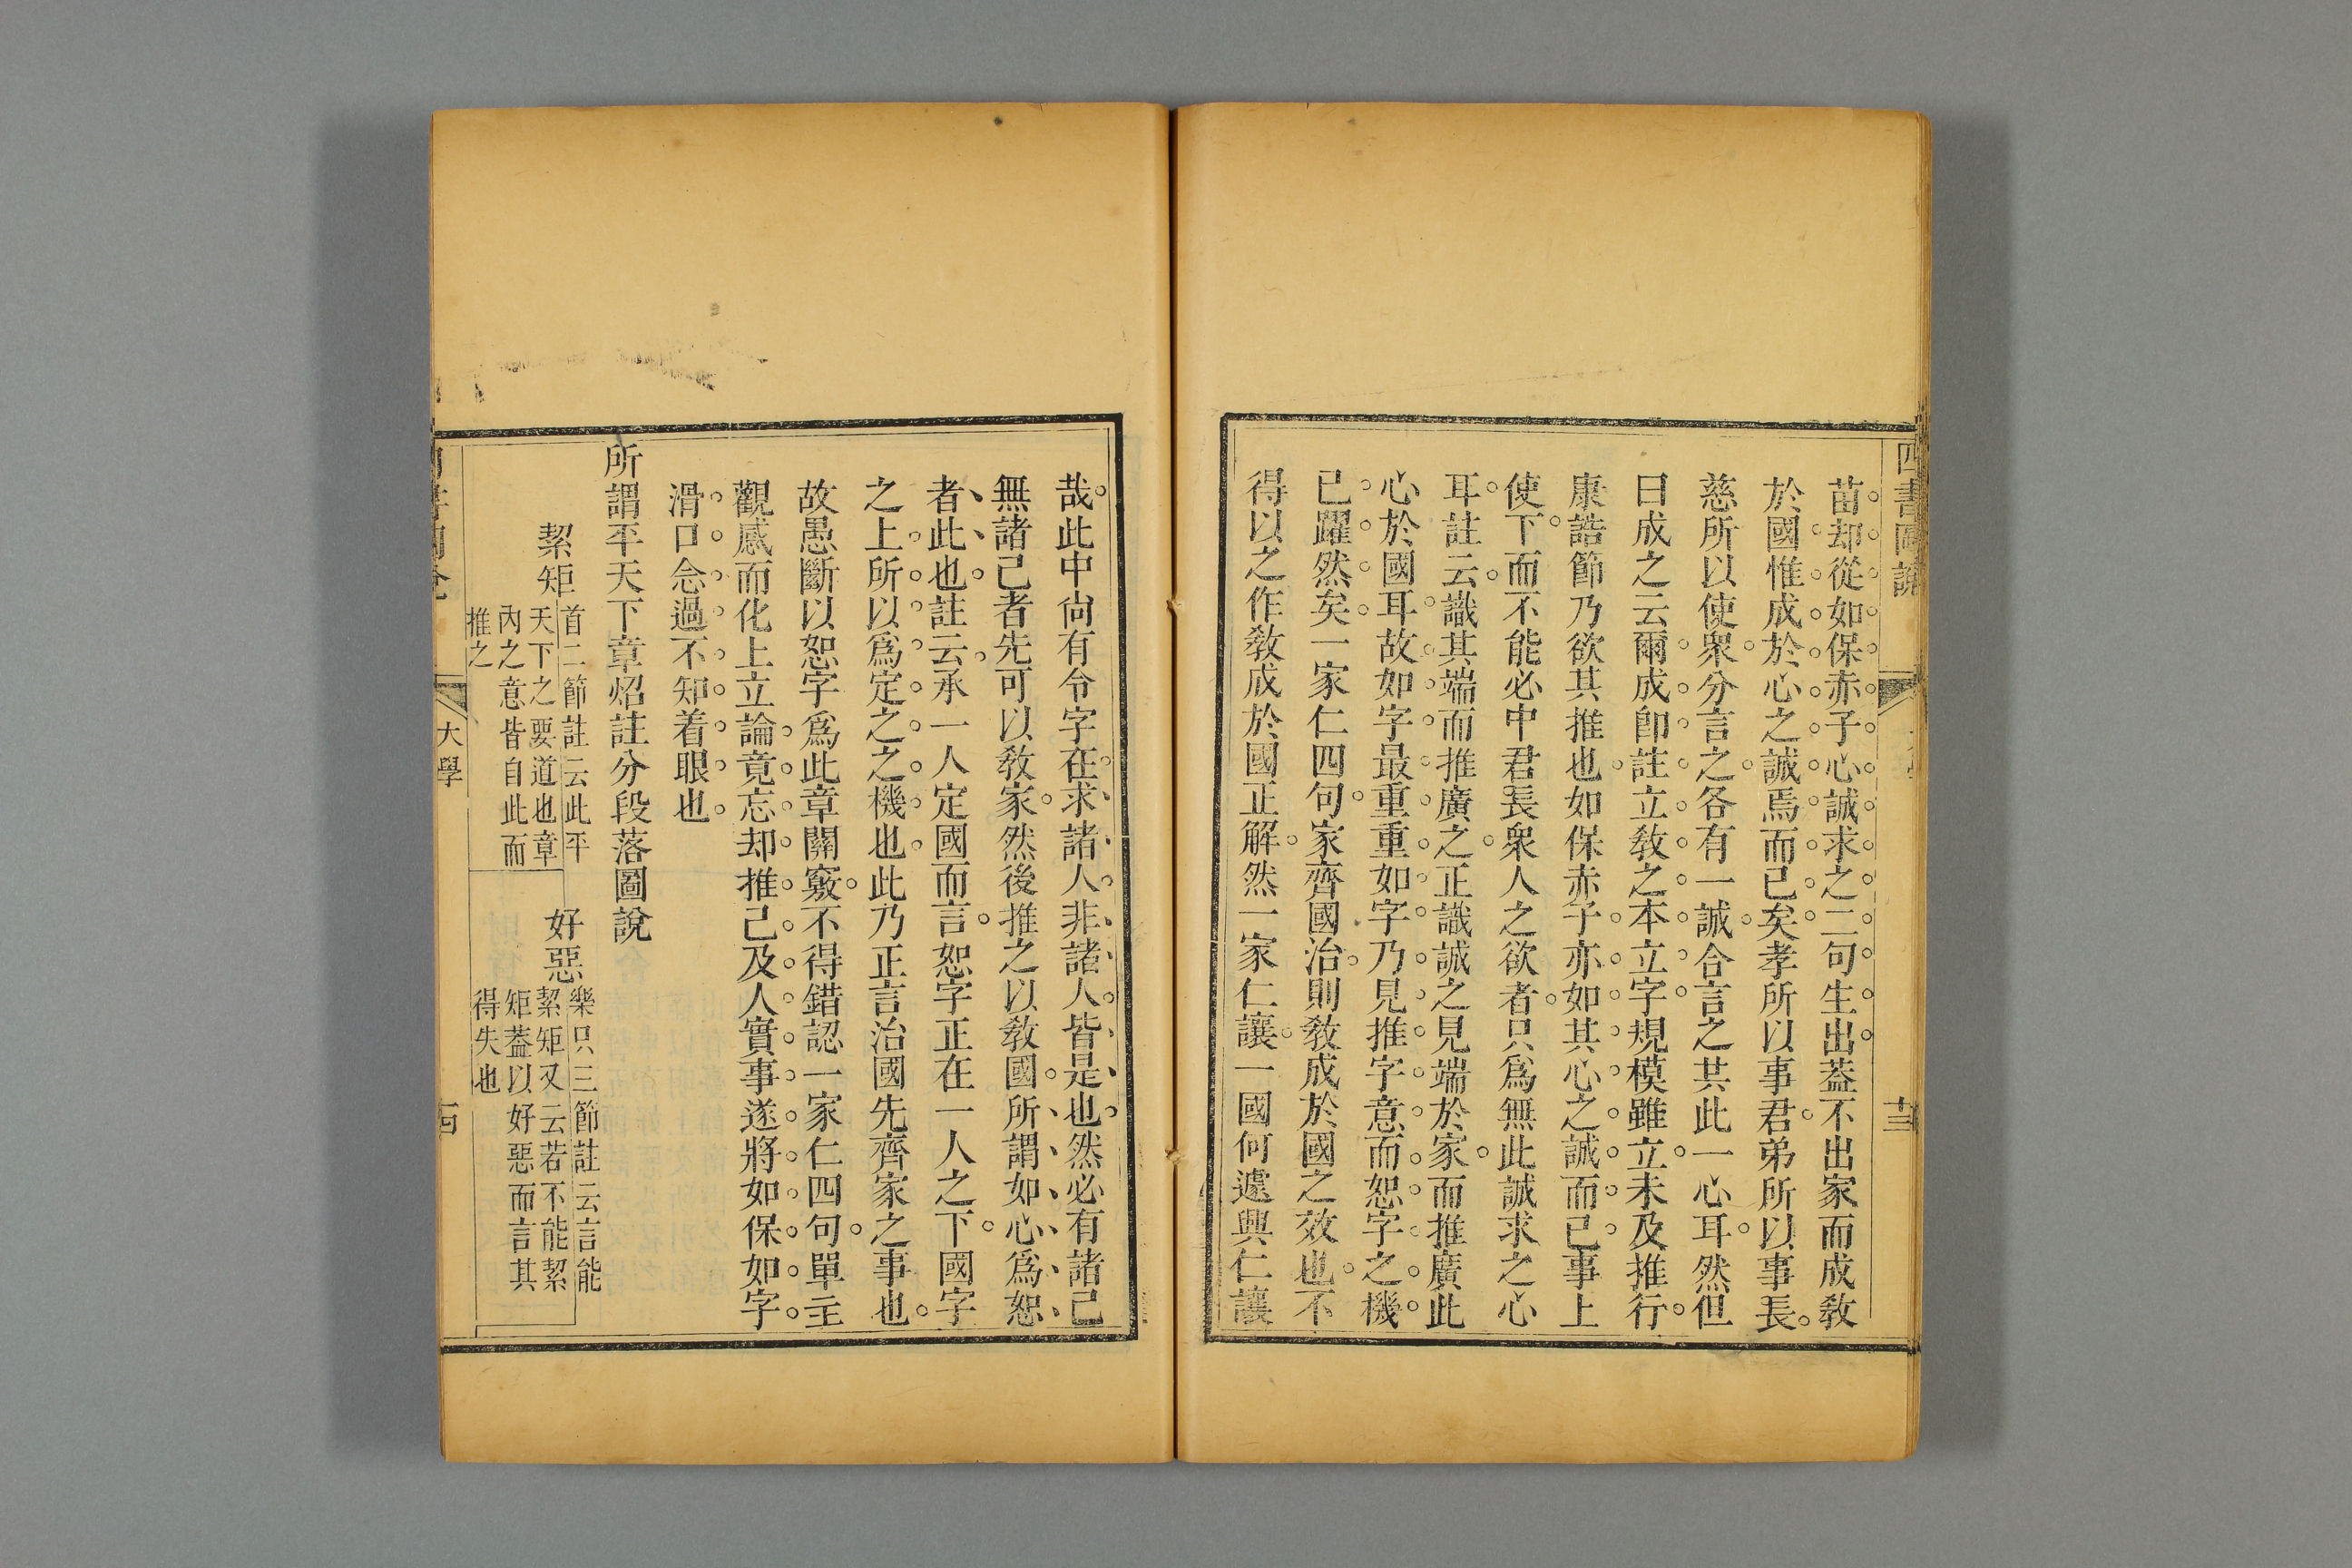 四書圖說
苗却從如保赤子心誠求之二句生出葢不出家而成敎
於國惟成於心之誠焉而已矣孝所以事君弟所以事長
慈所以使衆分言之各有一誠合言之其此一心耳然但
曰成之云爾成卽註立敎之本立字規模雖立未及推行
康誥節乃欲其推也如保赤子亦如其心之誠而已事上
使下而不能必中君長衆人之欲者只爲無此誠求之心
耳註云識其端而推廣之正識誠之見端於家而推廣此
心於國耳故如字最重重如字乃見推字意而恕字之機
已躍然矣一家仁四句家齊國治則敎成於國之效也不
得以之作敎成於國正解然一家仁讓一國何遽興仁讓
哉此中尙有令字在求諸人非諸人皆是也然必有諸己
無諸己者先可以敎家然後推之以敎國所謂如心爲恕
者此也註云承一人定國而言恕字正在一人之下國字
之上所以爲定之之機也此乃正言治國先齊家之事也
故愚斷以恕字爲此章關竅不得錯認一家仁四句單主
觀感而化上立論竟忘却推己及人實事遂將如保如字
滑口念過不知着眼也
所謂平天下章炤註分段落圖說
絜矩
首二節註云此平
天下之要道也章
內之意皆自此而
推之
好惡
樂只三節註云言能
絜矩又云若不能絜
矩葢以好惡而言其
得失也
大學